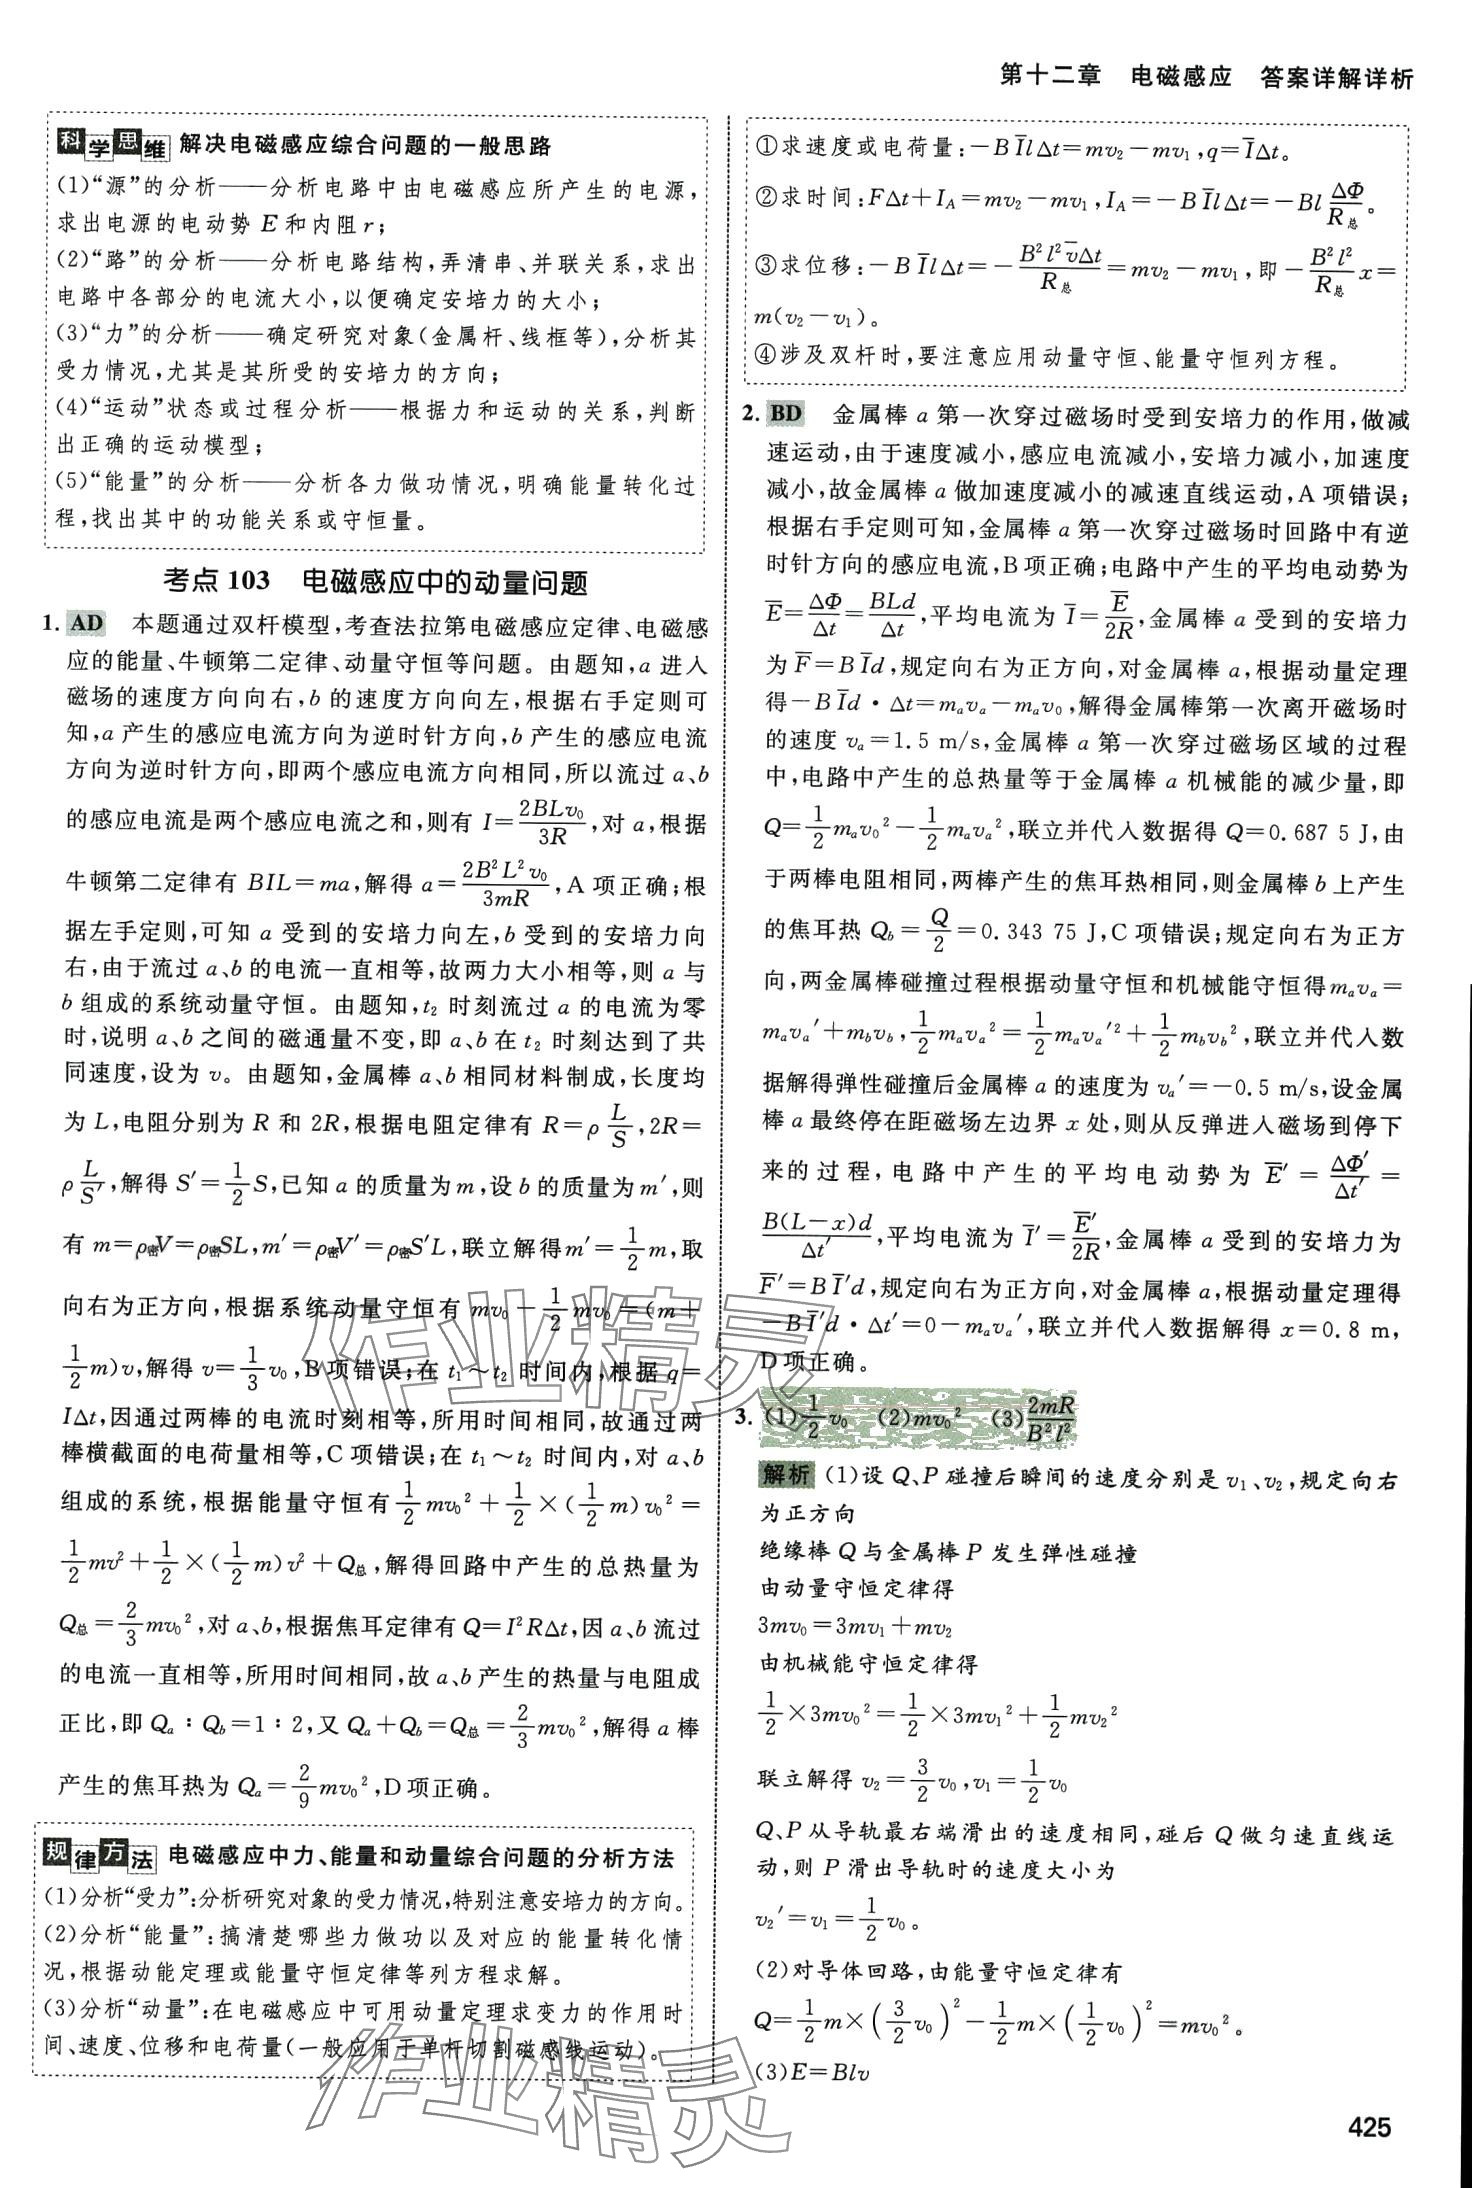 第十二章　电磁感应　答案详解详析
科学思维 解决电磁感应综合问题的一般思路
(1)“源”的分析——分析电路中由电磁感应所产生的电源,
求出电源的电动势 E 和内阻 r;
(2)“路”的分析——分析电路结构,弄清串、并联关系,求出
电路中各部分的电流大小,以便确定安培力的大小;
(3)“力”的分析——确定研究对象(金属杆、线框等),分析其
受力情况,尤其是其所受的安培力的方向;
(4)“运动”状态或过程分析——根据力和运动的关系,判断
出正确的运动模型;
(5)“能量”的分析——分析各力做功情况,明确能量转化过
程,找出其中的功能关系或守恒量。
考点 103　电磁感应中的动量问题
1. AD　本题通过双杆模型,考查法拉第电磁感应定律、电磁感
应的能量、牛顿第二定律、动量守恒等问题。由题知,a 进入
磁场的速度方向向右,b 的速度方向向左,根据右手定则可
知,a 产生的感应电流方向为逆时针方向,b 产生的感应电流
方向为逆时针方向,即两个感应电流方向相同,所以流过 a、b
的感应电流是两个感应电流之和,则有 I=2BLv₀/3R,对 a,根据
牛顿第二定律有 BIL=ma,解得 a=2B²L²v₀/3mR,A 项正确;根
据左手定则,可知 a 受到的安培力向左,b 受到的安培力向
右,由于流过 a、b 的电流一直相等,故两力大小相等,则 a 与
b 组成的系统动量守恒。由题知,t₂ 时刻流过 a 的电流为零
时,说明 a、b 之间的磁通量不变,即 a、b 在 t₂ 时刻达到了共
同速度,设为 v。由题知,金属棒 a、b 相同材料制成,长度均
为 L,电阻分别为 R 和 2R,根据电阻定律有 R=ρL/S,2R=
ρL/S′,解得 S′=1/2 S,已知 a 的质量为 m,设 b 的质量为 m′,则
有 m=ρ密V=ρ密SL,m′=ρ密V′=ρ密S′L,联立解得m′=1/2 m,取
向右为正方向,根据系统动量守恒有 mv₀-1/2 mv₀=(m+
1/2 m)v,解得 v=1/3 v₀,B 项错误;在 t₁~t₂ 时间内,根据 q=
IΔt,因通过两棒的电流时刻相等,所用时间相同,故通过两
棒横截面的电荷量相等,C 项错误;在 t₁~t₂ 时间内,对 a、b
组成的系统,根据能量守恒有 1/2 mv₀²+1/2×(1/2 m)v₀²=
1/2 mv²+1/2×(1/2 m)v²+Q总,解得回路中产生的总热量为
Q总=2/3 mv₀²,对 a、b,根据焦耳定律有 Q=I²RΔt,因 a、b 流过
的电流一直相等,所用时间相同,故 a、b 产生的热量与电阻成
正比,即 Qa:Qb=1:2,又 Qa+Qb=Q总=2/3 mv₀²,解得 a 棒
产生的焦耳热为 Qa=2/9 mv₀²,D 项正确。
规律方法 电磁感应中力、能量和动量综合问题的分析方法
(1)分析“受力”:分析研究对象的受力情况,特别注意安培力的方向。
(2)分析“能量”:搞清楚哪些力做功以及对应的能量转化情
况,根据动能定理或能量守恒定律等列方程求解。
(3)分析“动量”:在电磁感应中可用动量定理求变力的作用时
间、速度、位移和电荷量(一般应用于单杆切割磁感线运动)。
①求速度或电荷量:-BI̅lΔt=mv₂-mv₁,q=I̅Δt。
②求时间:FΔt+I_A=mv₂-mv₁,I_A=-BI̅lΔt=-Bl ΔΦ/R总。
③求位移:-BI̅lΔt=-B²l²v̅Δt/R总=mv₂-mv₁,即-B²l²/R总 x=
m(v₂-v₁)。
④涉及双杆时,要注意应用动量守恒、能量守恒列方程。
2. BD　金属棒 a 第一次穿过磁场时受到安培力的作用,做减
速运动,由于速度减小,感应电流减小,安培力减小,加速度
减小,故金属棒 a 做加速度减小的减速直线运动,A 项错误;
根据右手定则可知,金属棒 a 第一次穿过磁场时回路中有逆
时针方向的感应电流,B 项正确;电路中产生的平均电动势为
E̅=ΔΦ/Δt=BLd/Δt,平均电流为 I̅=E̅/2R,金属棒 a 受到的安培力
为 F̅=BI̅d,规定向右为正方向,对金属棒 a,根据动量定理
得-BI̅d·Δt=mₐvₐ-mₐv₀,解得金属棒第一次离开磁场时
的速度 vₐ=1.5 m/s,金属棒 a 第一次穿过磁场区域的过程
中,电路中产生的总热量等于金属棒 a 机械能的减少量,即
Q=1/2 mₐv₀²-1/2 mₐvₐ²,联立并代入数据得 Q=0.687 5 J,由
于两棒电阻相同,两棒产生的焦耳热相同,则金属棒 b 上产生
的焦耳热 Qb=Q/2=0.343 75 J,C 项错误;规定向右为正方
向,两金属棒碰撞过程根据动量守恒和机械能守恒得mₐvₐ=
mₐvₐ′+mbvb,1/2 mₐvₐ²=1/2 mₐvₐ′²+1/2 mbvb²,联立并代入数
据解得弹性碰撞后金属棒 a 的速度为 vₐ′=-0.5 m/s,设金属
棒 a 最终停在距磁场左边界 x 处,则从反弹进入磁场到停下
来的过程,电路中产生的平均电动势为 E̅′=ΔΦ′/Δt′=
B(L-x)d/Δt′,平均电流为 I̅′=E̅′/2R,金属棒 a 受到的安培力为
F̅′=BI̅′d,规定向右为正方向,对金属棒 a,根据动量定理得
-BI̅′d·Δt′=0-mₐvₐ′,联立并代入数据解得 x=0.8 m,
D 项正确。
3. (1)1/2 v₀　(2)mv₀²　(3)2mR/B²l²
解析 (1)设 Q、P 碰撞后瞬间的速度分别是 v₁、v₂,规定向右
为正方向
绝缘棒 Q 与金属棒 P 发生弹性碰撞
由动量守恒定律得
3mv₀=3mv₁+mv₂
由机械能守恒定律得
1/2×3mv₀²=1/2×3mv₁²+1/2 mv₂²
联立解得 v₂=3/2 v₀,v₁=1/2 v₀
Q、P 从导轨最右端滑出的速度相同,碰后 Q 做匀速直线运
动,则 P 滑出导轨时的速度大小为
v₂′=v₁=1/2 v₀。
(2)对导体回路,由能量守恒定律有
Q=1/2 m×(3/2 v₀)²-1/2 m×(1/2 v₀)²=mv₀²。
(3)E=Blv
425
作业精灵
作业精灵